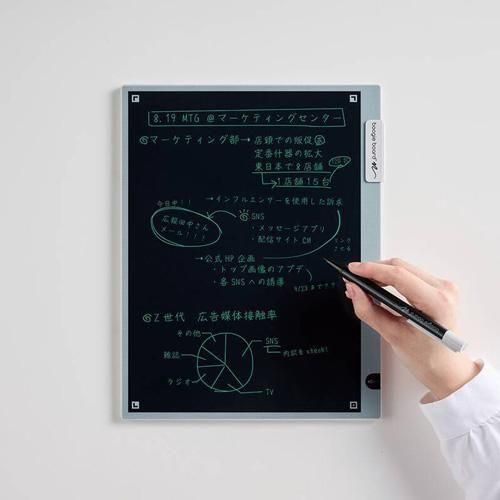 8.19 MTG @マーケティングセンター
マーケティング部→ 店頭での販促
定番什器の拡大
東日本で8店舗
→1店舗15台
今日中!!
広報田中さん
メール!!!
→インフルエンサーを使用した訴求
SNS
・メッセージアプリ
・配信サイトCM
リンク
させる
→公式HP企画
・トップ画像のアプデ
・各SNSへの誘導
9/23まで
Z世代 広告媒体接触率
その他
SNS
内訳をcheck!
雑誌
ラジオ
TV
boogie board